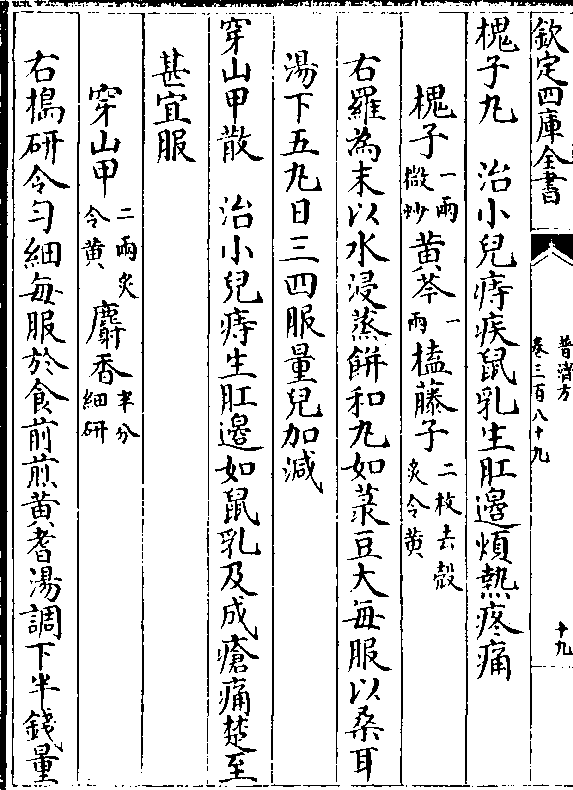 欽定四庫全書
普濟方
卷三百八十九
十九
槐子丸 治小兒痔疾鼠乳生肛邊煩熱疼痛
槐子一兩微炒黄芩一兩榼藤子二枚去殼炙令黄
右羅為末以水浸蒸餅和丸如菉豆大毎服以桑耳
湯下五丸日三四服量兒加減
穿山甲散 治小兒痔生肛邊如鼠乳及成瘡痛楚至
甚宜服
穿山甲二兩炙令黄麝香半分細研
右搗研令勻細毎服於食前煎黄耆湯調下半錢量